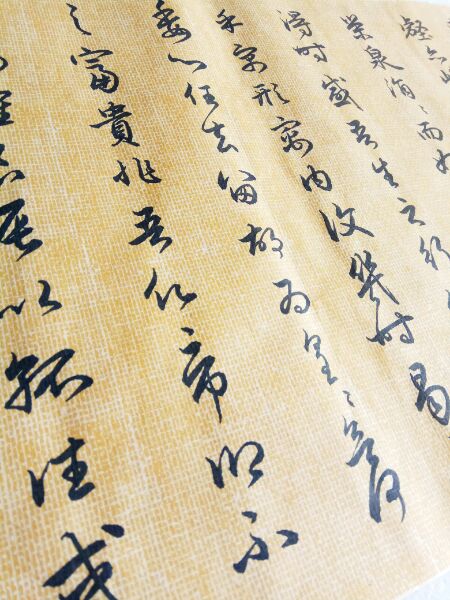 壑亦崎
榮泉涓〻而始
得時感吾生之行
乎寓形寓內復幾時曷
委心任去留胡為遑〻欲何
之富貴非吾願帝鄉不
良辰以孤往或